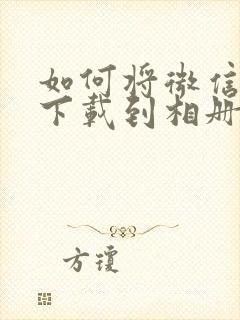 如何将微信
下载到相册
方琼